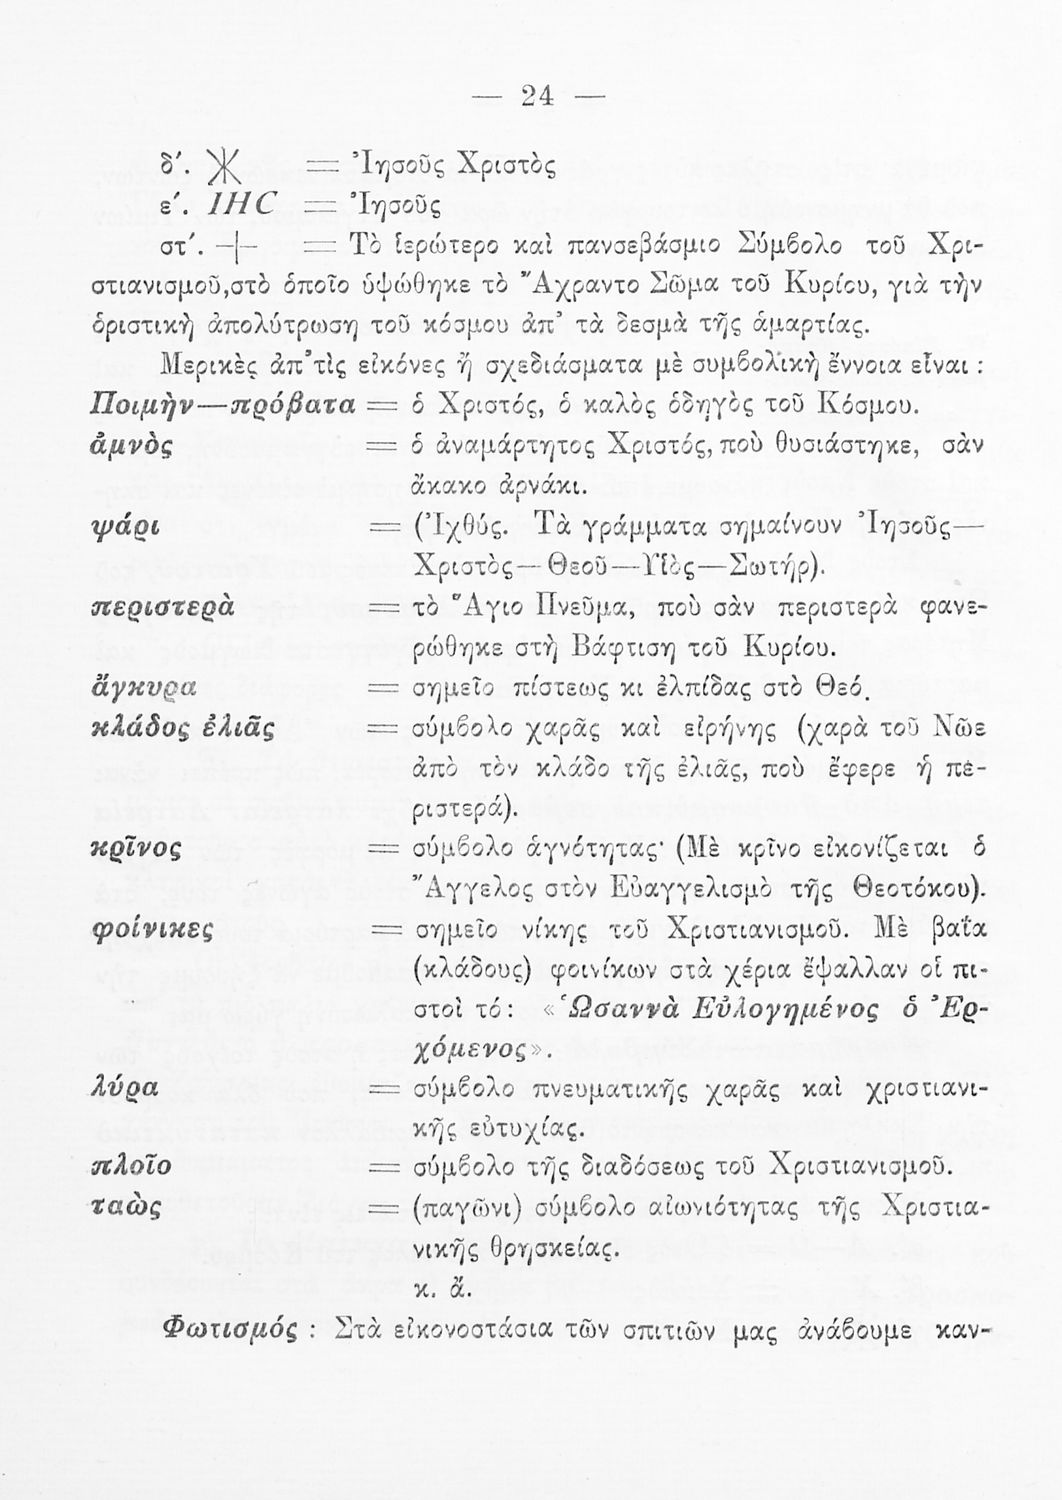 — 24 —
δ′. Ж = Ἰησοῦς Χριστὸς
ε′. IHC = Ἰησοῦς
στ′. + = Τὸ ἱερώτερο καὶ πανσεβάσμιο Σύμβολο τοῦ Χρι-
στιανισμοῦ,στὸ ὁποῖο ὑψώθηκε τὸ Ἄχραντο Σῶμα τοῦ Κυρίου, γιὰ τὴν
ὁριστικὴ ἀπολύτρωση τοῦ κόσμου ἀπ' τὰ δεσμὰ τῆς ἁμαρτίας.
Μερικὲς ἀπ' τὶς εἰκόνες ἢ σχεδιάσματα μὲ συμβολικὴ ἔννοια εἶναι :
Ποιμὴν—πρόβατα = ὁ Χριστός, ὁ καλὸς ὁδηγὸς τοῦ Κόσμου.
ἀμνὸς = ὁ ἀναμάρτητος Χριστός, ποὺ θυσιάστηκε, σὰν
ἄκακο ἀρνάκι.
ψάρι = (Ἰχθύς. Τὰ γράμματα σημαίνουν Ἰησοῦς—
Χριστὸς—Θεοῦ—Υἱὸς—Σωτήρ).
περιστερὰ = τὸ Ἅγιο Πνεῦμα, ποὺ σὰν περιστερὰ φανε-
ρώθηκε στὴ Βάφτιση τοῦ Κυρίου.
ἄγκυρα = σημεῖο πίστεως κι ἐλπίδας στὸ Θεό.
κλάδος ἐλιᾶς = σύμβολο χαρᾶς καὶ εἰρήνης (χαρὰ τοῦ Νῶε
ἀπὸ τὸν κλάδο τῆς ἐλιᾶς, ποὺ ἔφερε ἡ πε-
ριστερά).
κρῖνος = σύμβολο ἁγνότητας· (Μὲ κρῖνο εἰκονίζεται ὁ
Ἄγγελος στὸν Εὐαγγελισμὸ τῆς Θεοτόκου).
φοίνικες = σημεῖο νίκης τοῦ Χριστιανισμοῦ. Μὲ βαΐα
(κλάδους) φοινίκων στὰ χέρια ἔψαλλαν οἱ πι-
στοὶ τό: «Ὡσαννὰ Εὐλογημένος ὁ Ἐρ-
χόμενος».
λύρα = σύμβολο πνευματικῆς χαρᾶς καὶ χριστιανι-
κῆς εὐτυχίας.
πλοῖο = σύμβολο τῆς διαδόσεως τοῦ Χριστιανισμοῦ.
ταὼς = (παγῶνι) σύμβολο αἰωνιότητας τῆς Χριστια-
νικῆς θρησκείας.
κ. ἄ.
Φωτισμός : Στὰ εἰκονοστάσια τῶν σπιτιῶν μας ἀνάβουμε καν-